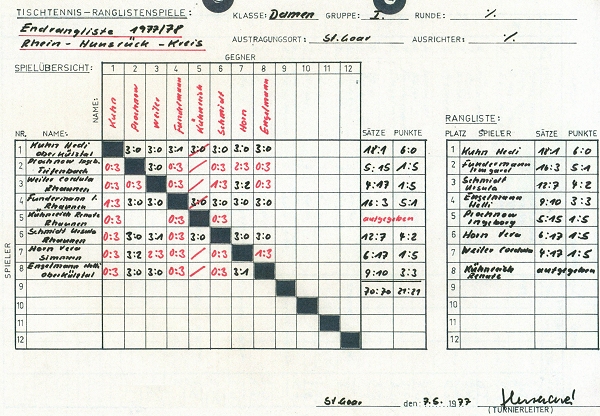 TISCHTENNIS-RANGLISTENSPIELE: KLASSE: Damen GRUPPE: I. RUNDE: ·/.
Endrangliste 1977/78
Rhein-Hunsrück-Kreis AUSTRAGUNGSORT: St. Goar AUSRICHTER: ·/.
GEGNER
SPIELÜBERSICHT: 1 2 3 4 5 6 7 8 9 10 11 12
NAME: Kuhn Prochnow Weiler Fundermann Kühnreich Schmidt Horn Engelmann
RANGLISTE:
NR. NAME: SÄTZE PUNKTE PLATZ SPIELER SÄTZE PUNKTE
SPIELER
1 Kuhn Hedi Oberkülztal 3:0 3:0 3:1 3:0 3:0 3:0 3:0 18:1 6:0
2 Prochnow Ingb. Tiefenbach 0:3 3:0 0:3 / 0:3 2:3 0:3 5:15 1:5
3 Weiler Cordula Rhaunen 0:3 0:3 0:3 / 1:3 3:2 0:3 4:17 1:5
4 Fundermann I. " Rhaunen 1:3 3:0 3:0 3:0 3:0 3:0 3:0 16:3 5:1
5 Kühnreich Renate Rhaunen 0:3 0:3 aufgegeben
6 Schmidt Ursula Rhaunen 0:3 3:0 3:1 0:3 3:0 3:0 3:0 12:7 4:2
7 Horn Vera Simmern 0:3 3:2 2:3 0:3 / 0:3 1:3 6:17 1:5
8 Engelmann Hedi Oberkülztal 0:3 3:0 3:0 0:3 / 0:3 3:1 9:10 3:3
9 70:70 21:21
10
11
12
1 Kuhn Hedi 18:1 6:0
2 Fundermann Irmgard 16:3 5:1
3 Schmidt Ursula 12:7 4:2
4 Engelmann Hedi 9:10 3:3
5 Prochnow Ingeborg 5:15 1:5
6 Horn Vera 6:17 1:5
7 Weiler Cordula 4:17 1:5
8 Kühnreich Renate aufgegeben
9
10
11
12
St. Goar den: 7.5. 1977
(TURNIERLEITER)